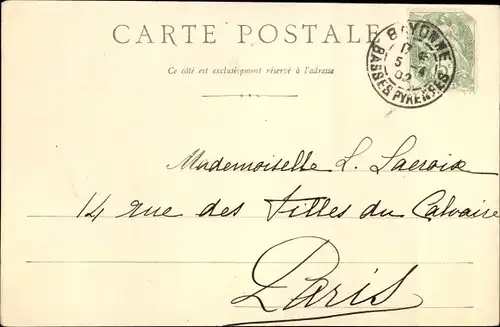 CARTE POSTALE
Ce côté est exclusivement réservé à l'adresse
BAYONNE
5 4
02
BASSES PYRENEES
Mademoiselle L. Lacroix
14 rue des Filles du Calvaire
Paris